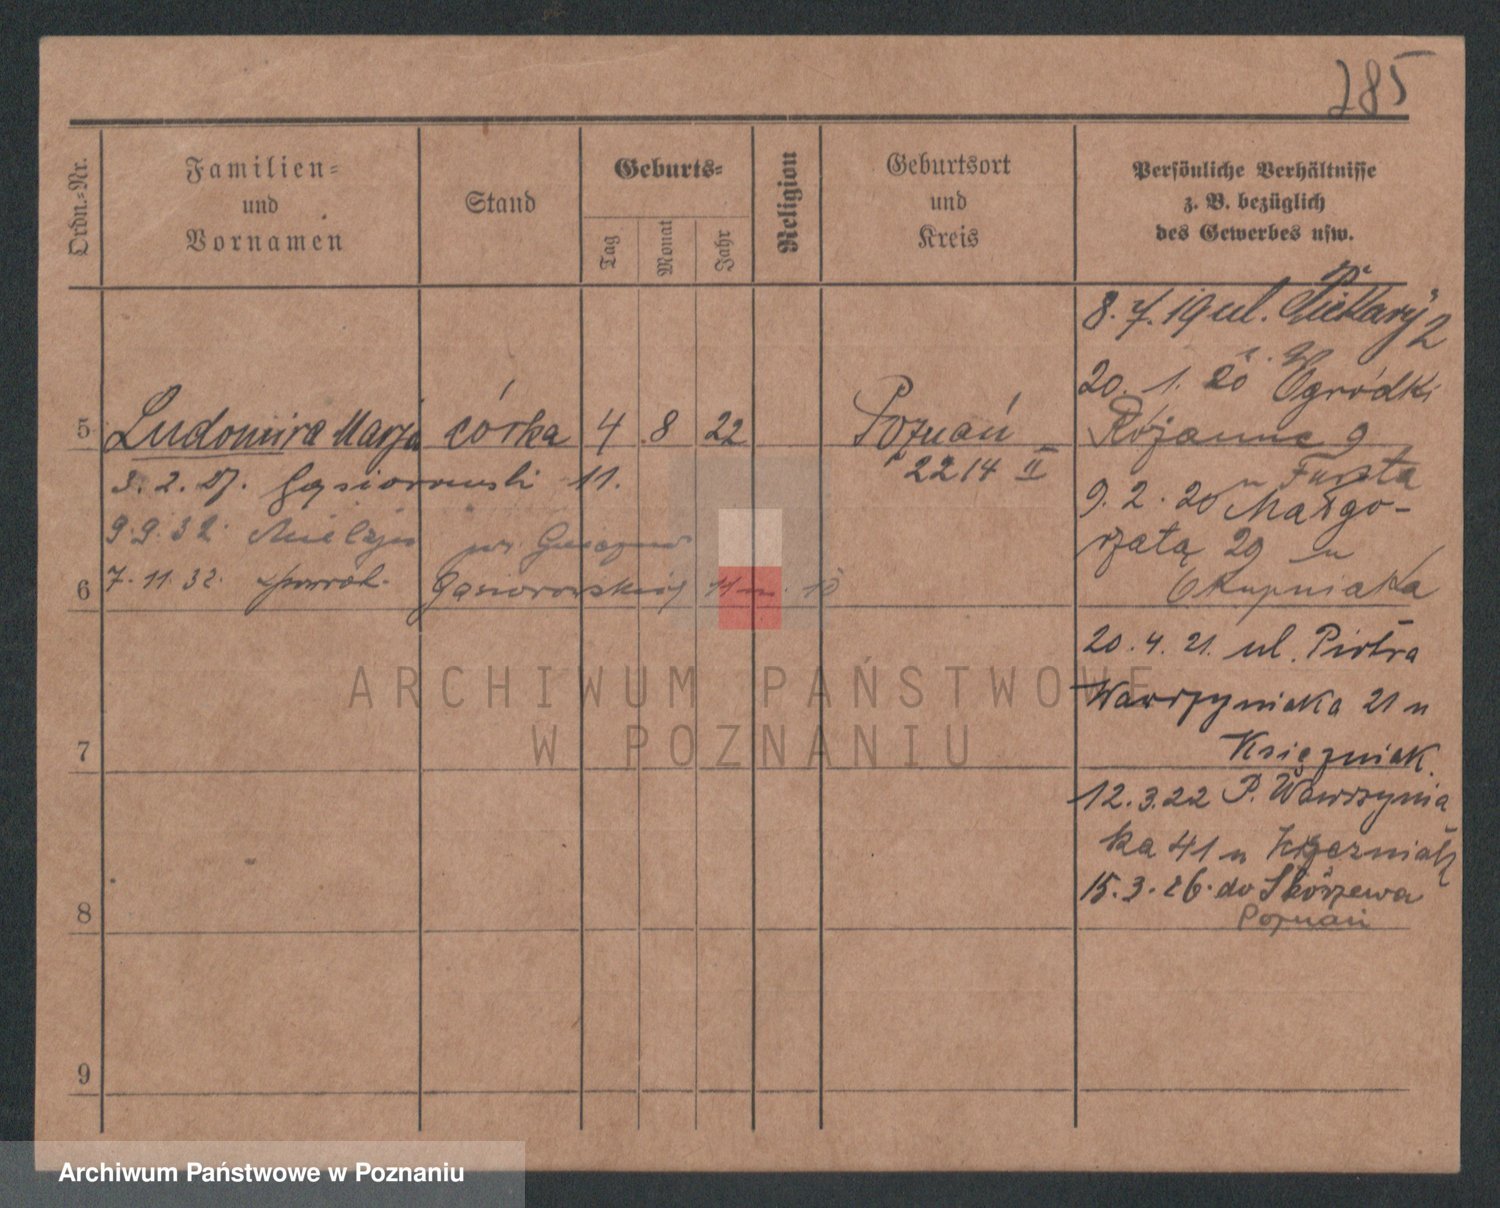 285
Ordn.-Nr.
Familien-
und
Vornamen
Stand
Geburts-
Tag
Monat
Jahr
Religion
Geburtsort
und
Kreis
Persönliche Verhältnisse
z. B. bezüglich
des Gewerbes usw.
8. 7. 19 ul. Piekary 2
20. 1. 20 Ogródki
5 Ludomira Marja córka 4 8 22 Poznań
2214 II
Różanna 9
u Fursta
3. 2. 27. Gąsiorowski 11.
9. 2. 20 Małgo-
rzatą 29 u
9. 9. 32.
Skupniaka
6
7. 11. 32. powrót. Gąsiorowskich 11 m. 10
20. 4. 21. ul. Piotra
Wawrzyniaka 21 u
Księzniak.
7
12. 3. 22 P. Wawrzynia
ka 41 u
15. 3. 26. do Skórzewa
Poznań
8
9
ARCHIWUM PAŃSTWOWE
W POZNANIU
Archiwum Państwowe w Poznaniu